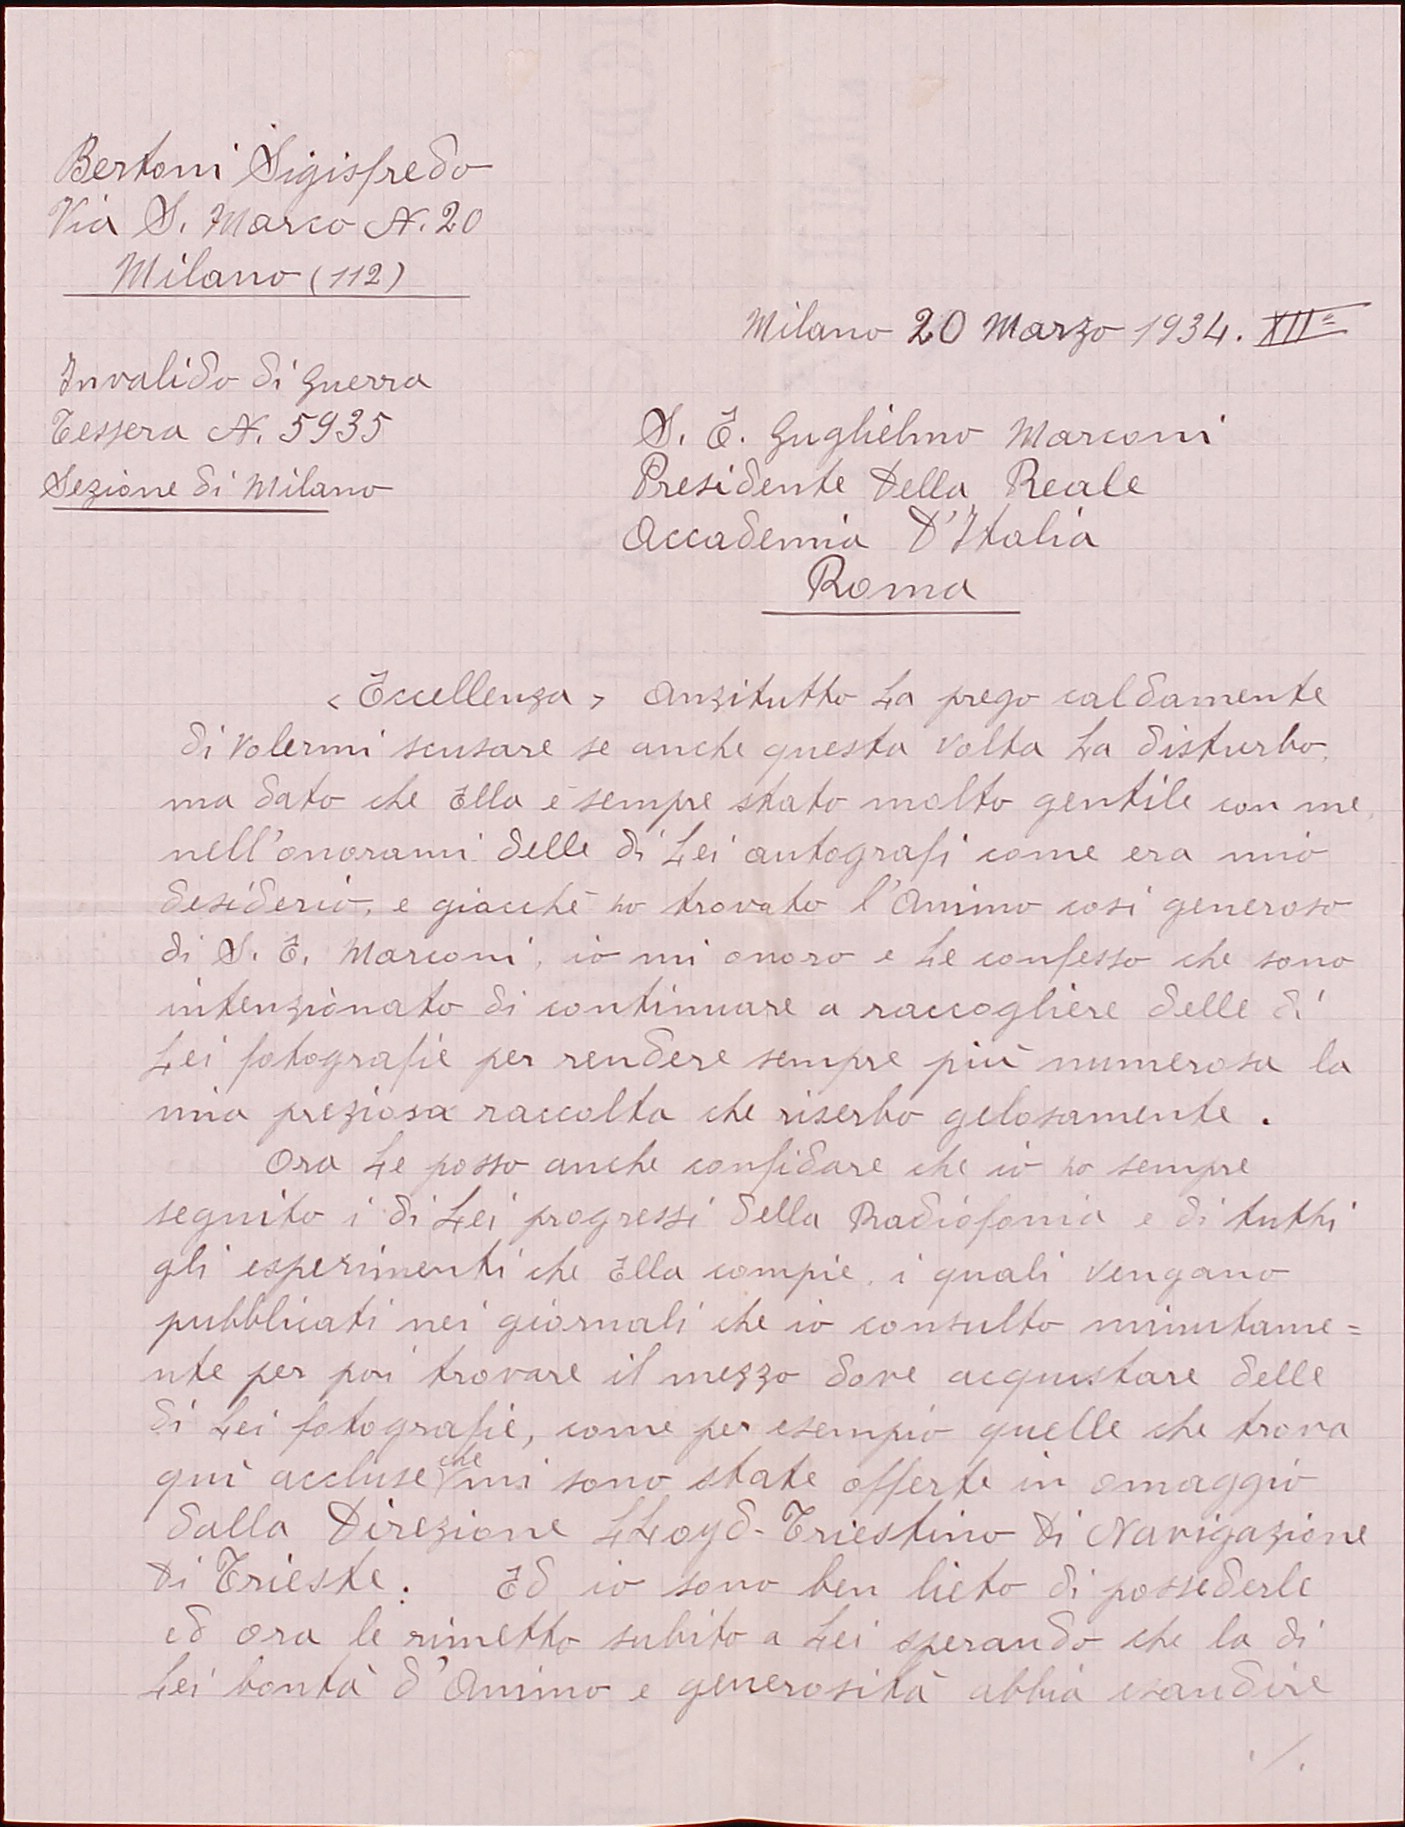 Bertoni Sigisfredo
Via S. Marco N. 20
Milano (112)
Milano 20 Marzo 1934. XII=
Invalido di guerra
Tessera N. 5935
Sezione di Milano
S. E. Guglielmo Marconi
Presidente Della Reale
Accademia D'Italia
Roma
< Eccellenza > Anzitutto La prego caldamente
di volermi scusare se anche questa volta La disturbo,
ma dato che Ella è sempre stato molto gentile con me,
nell'onorami delle di Lei autografi come era mio
desiderio, e giacchè ho trovato l'Animo cosi generoso
di S. E. Marconi, io mi onoro e Le confesso che sono
intenzionato di continuare a raccogliere delle di
Lei fotografie per rendere sempre più numerosa la
mia preziosa raccolta che riserbo gelosamente.
Ora Le posso anche confidare che io ho sempre
seguito i di Lei progressi della Radiofonia e di tutti
gli esperimenti che Ella compie, i quali vengano
pubblicati nei giornali che io consulto minutame=
nte per poi trovare il mezzo dove acquistare delle
di Lei fotografie, come per esempio quelle che trova
qui accluse che mi sono state offerte in omaggio
dalla Direzione LLoyd-Triestino Di Navigazione
Di Trieste. Ed io sono ben lieto di possederle
ed ora le rimetto subito a Lei sperando che la di
Lei bontà d'Animo e generosità abbia esaudire
./.